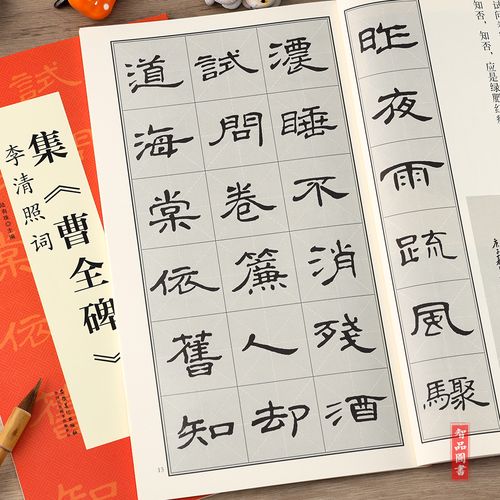 昨夜雨疏風驟
濃睡不消殘酒
試問卷簾人却
道海棠依舊知
13
知否，知否，应是绿肥红
集《曹全碑》
李清照词
試
棠
依
舊
智品圖書